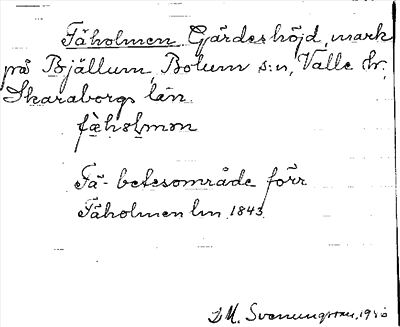 Fäholmen Gärdeshöjd, mark
på Bjällum, Bolum s:n, Valle hr.
Skaraborgs län.
fæhɷlmən
Fä-betesområde förr
Fäholmen lm 1843
M. Svenungsson, 1930